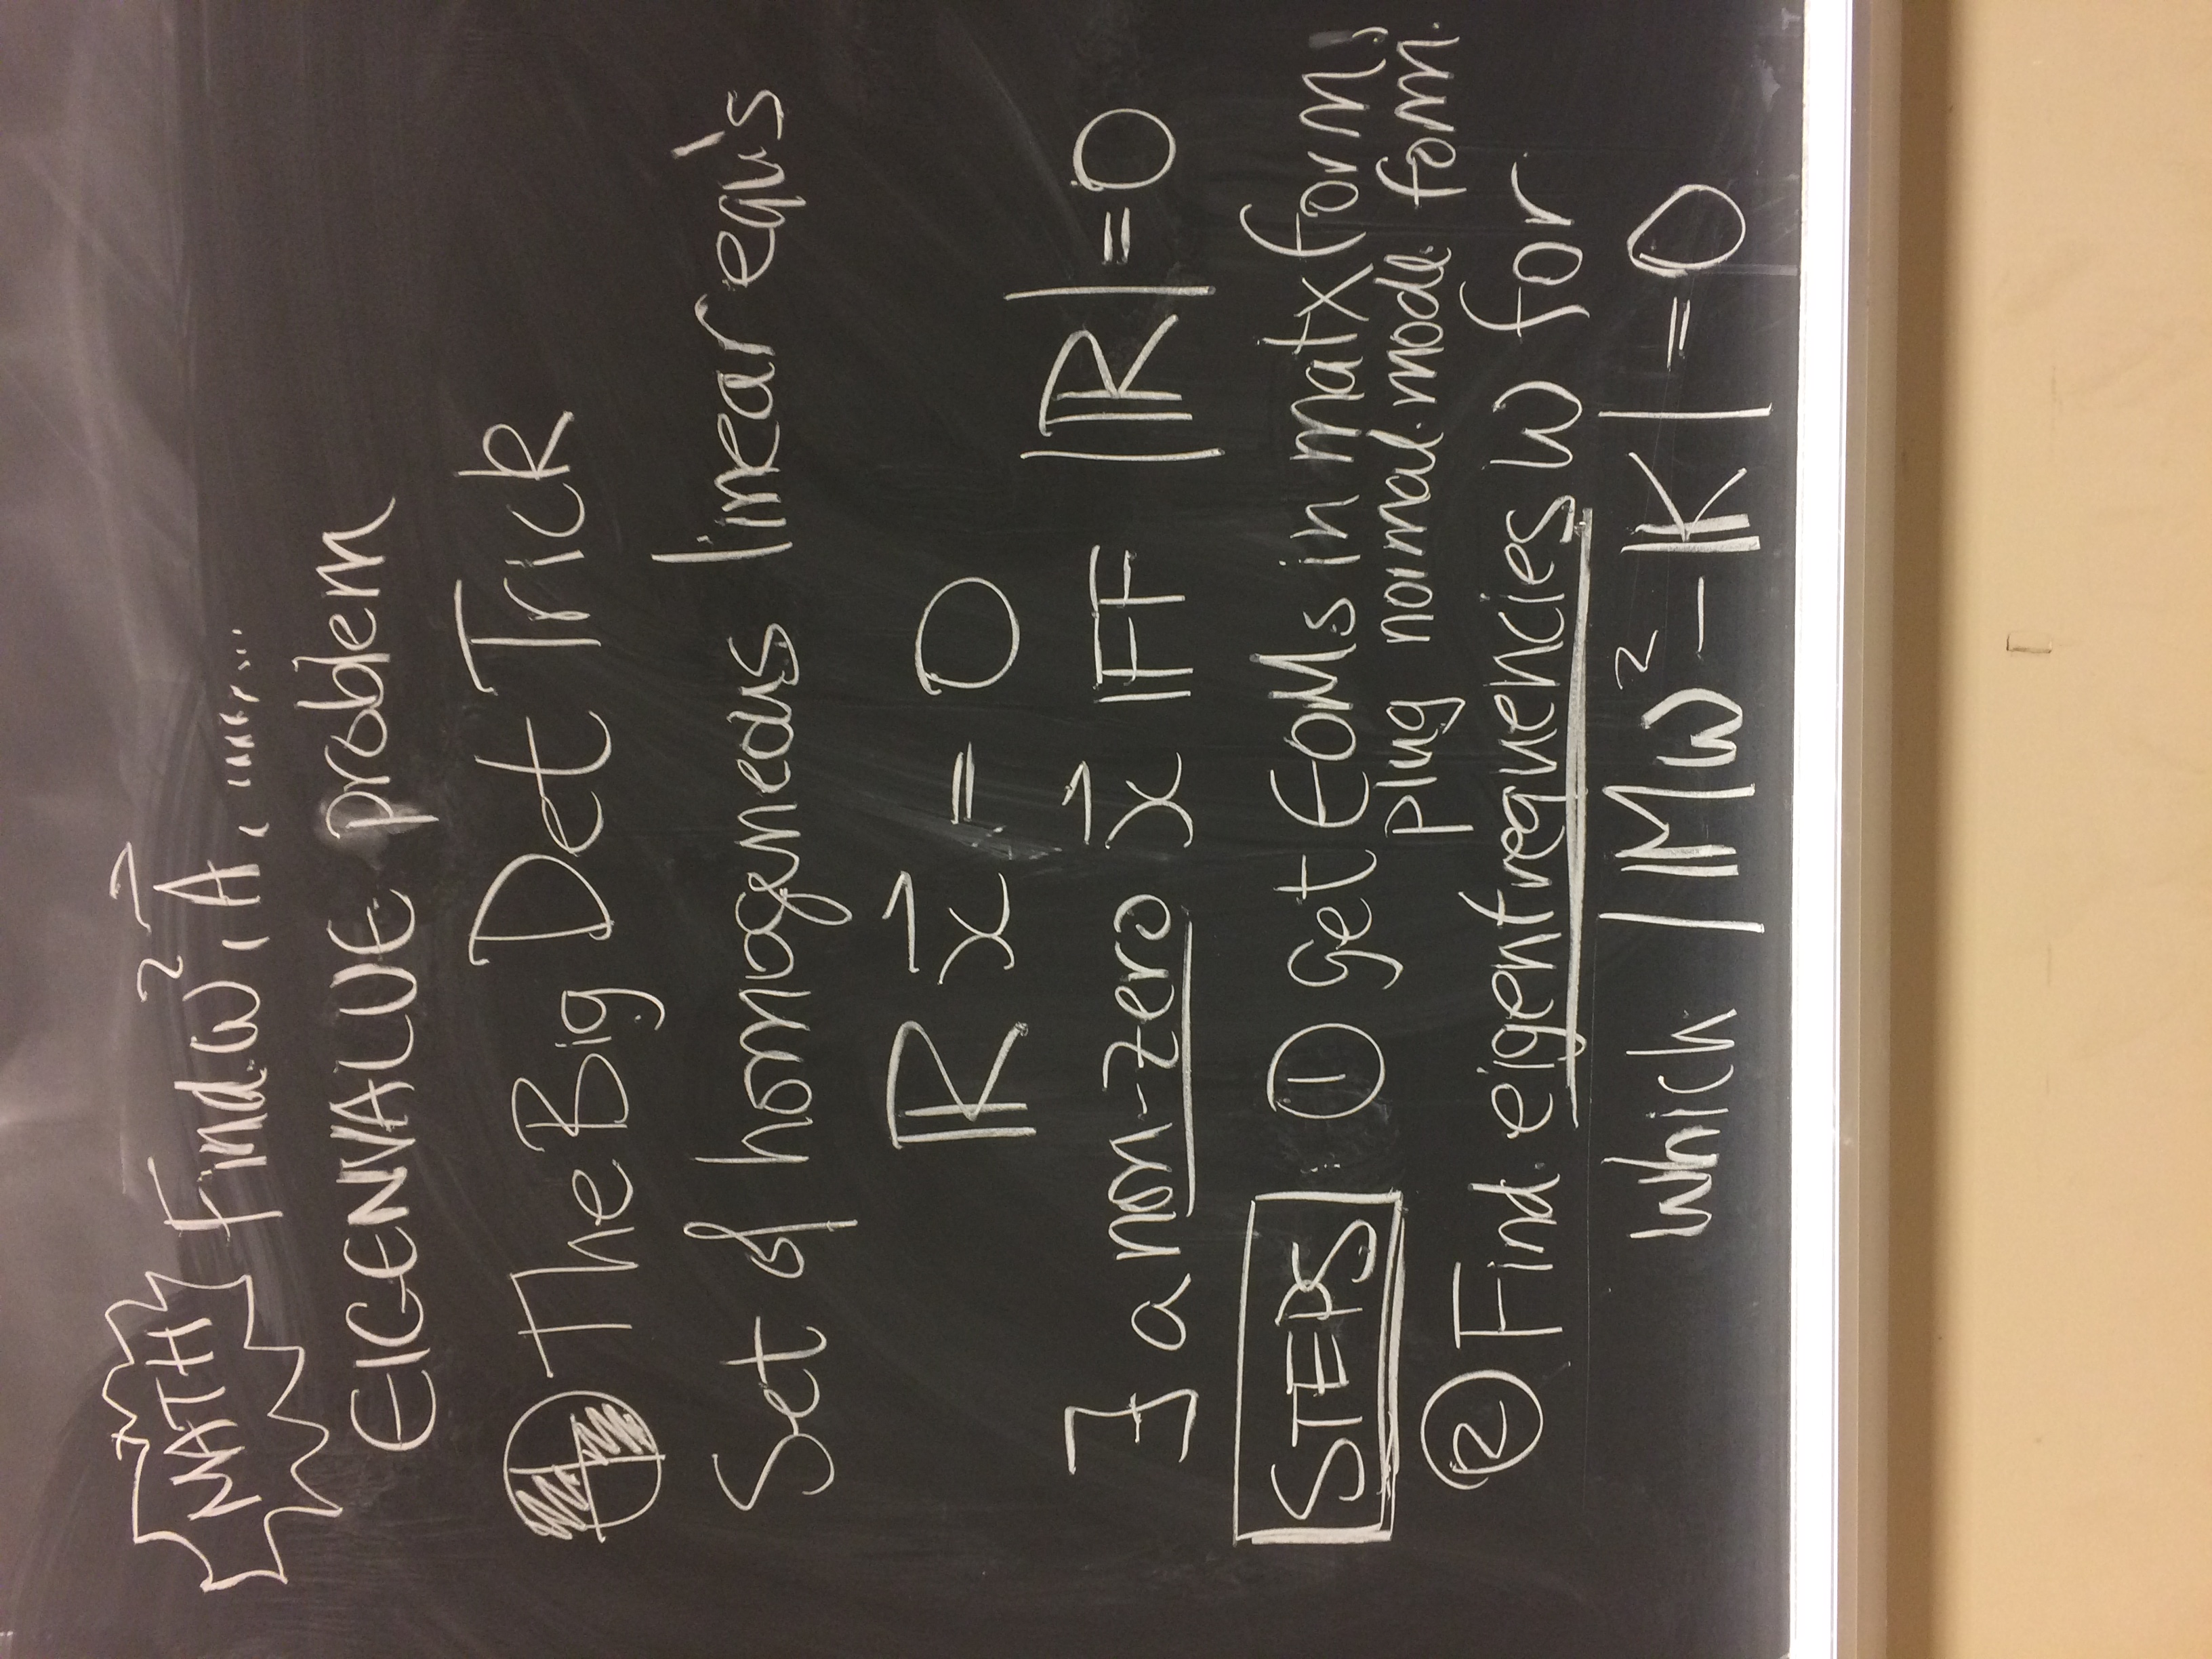 MATH Find ω², A⃗ . . . . . .
EIGENVALUE problem
The Big Det Trick
Set of homogeneous linear eqn's
R x⃗ = 0
∃ a non-zero x⃗ IFF |R| = 0
STEPS: ① get EoMs in matx form;
plug normal mode form.
② Find eigenfrequencies ω for
which |Mω² - K| = 0